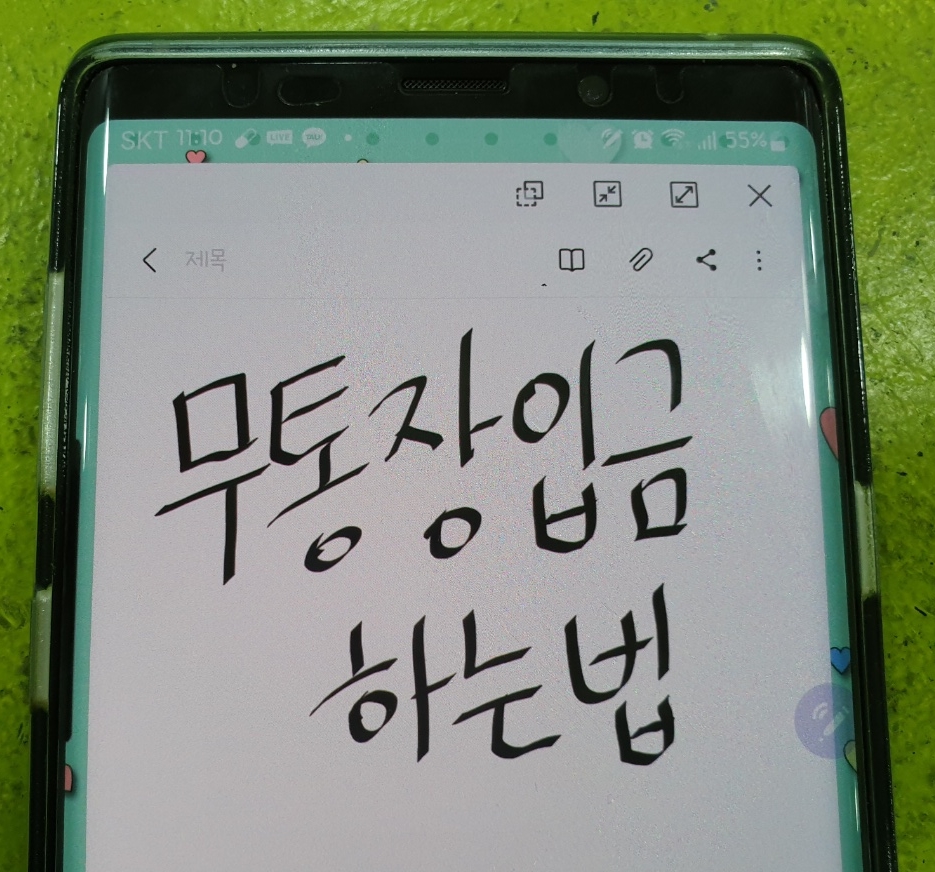 SKT 11:10 LIVE TALK 55%
제목
무통장입금
하는법